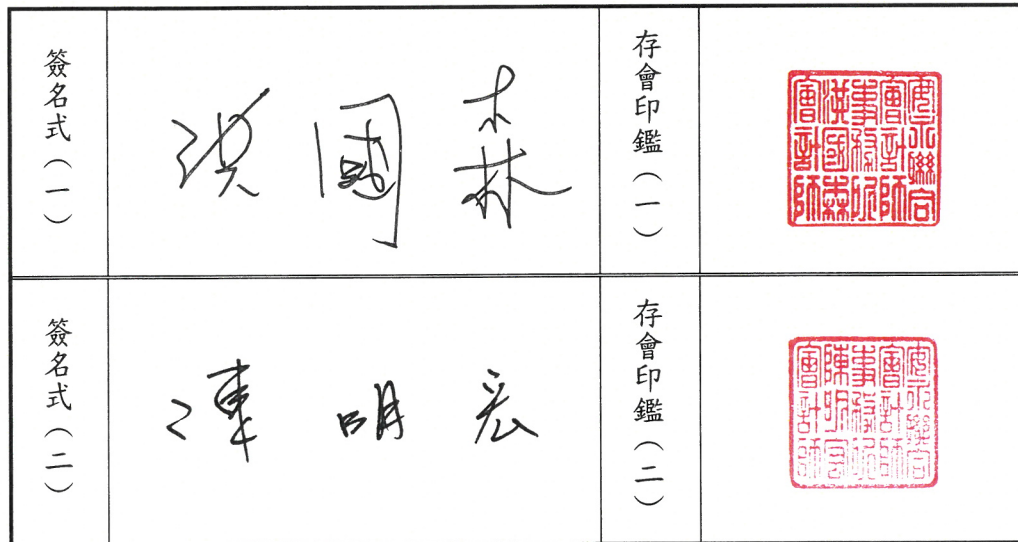 簽名式(一)
洪國森
存會印鑑(一)
安永聯合
會計師
事務所
洪國森
會計師
簽名式(二)
陳明宏
存會印鑑(二)
安永聯合
會計師
事務所
陳明宏
會計師